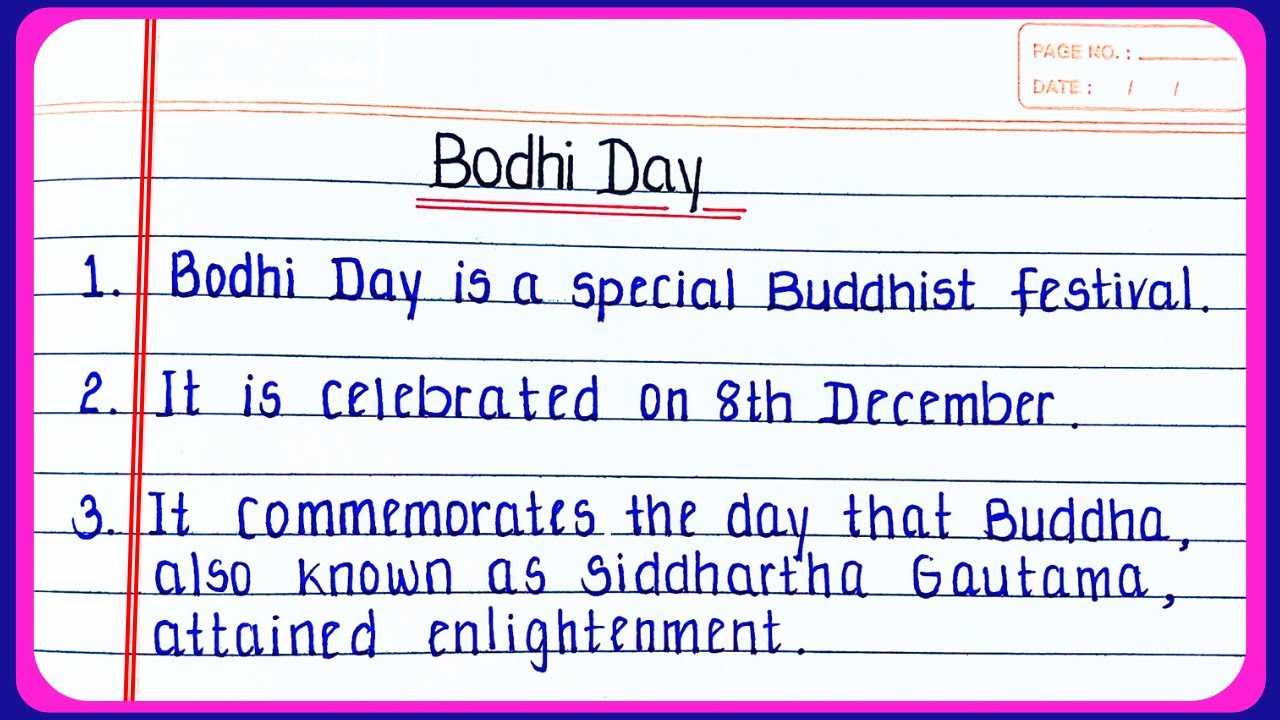 PAGE NO. :
DATE : / /
Bodhi Day
1. Bodhi Day is a special Buddhist festival.
2. It is celebrated on 8th December.
3. It commemorates the day that Buddha,
also known as Siddhartha Gautama,
attained enlightenment.